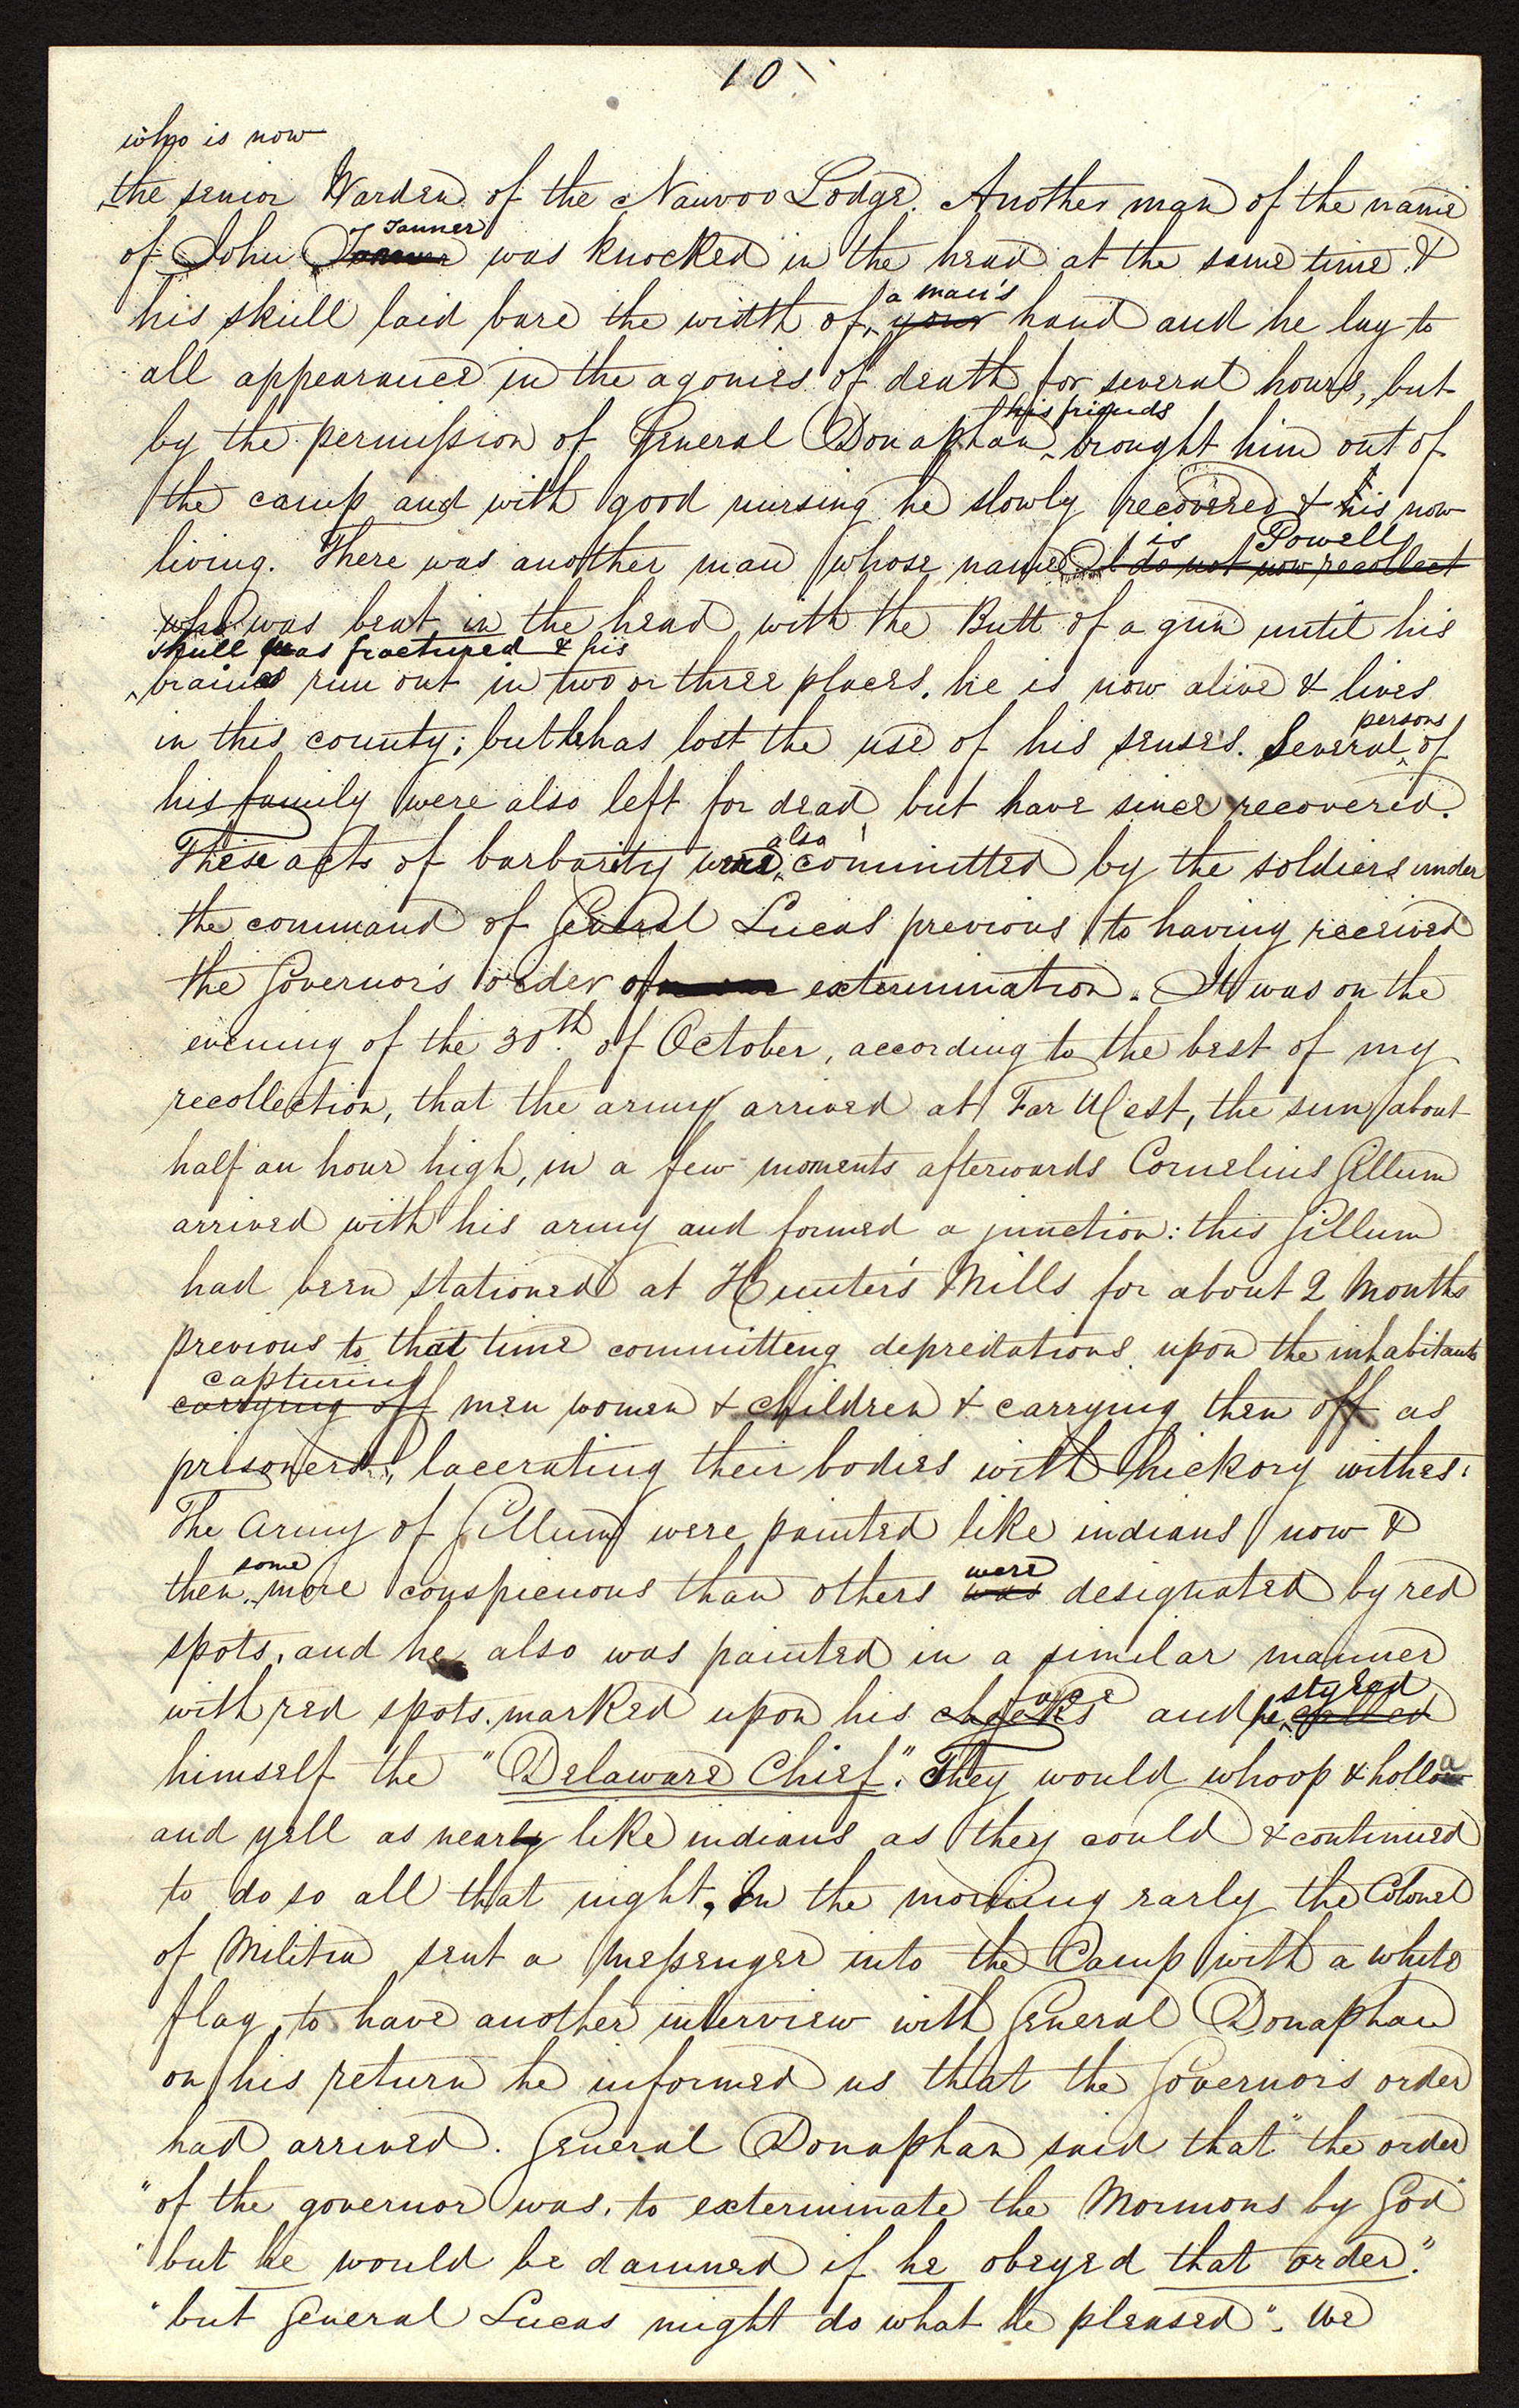 10
who is now
the senior Warden of the Nauvoo Lodge. Another man of the name
Tanner
of John was knocked in the head at the same time &
a man's
his skull laid bare the width of your hand and he lay to
all appearance in the agonies of death for several hours, but
his friends
by the permission of General Donaphan brought him out of
the camp and with good nursing he slowly recovered & is now
is Powell
living. There was another man whose name I do not now recollect
who was beat in the head with the Butt of a gun until his
skull was fractured & his
brains run out in two or three places. he is now alive & lives
persons
in this county; but has lost the use of his senses. Several of
his family were also left for dead but have since recovered.
also
These acts of barbarity were committed by the soldiers under
the command of General Lucas previous to having received
the Governor's order of extermination. It was on the
evening of the 30th. of October, according to the best of my
recollection, that the army arrived at Far West, the sun about
half an hour high, in a few moments afterwards Cornelius Gillum
arrived with his army and formed a junction: this Gillum
had been stationed at Hunter's Mills for about 2 Months
previous to that time committing depredations upon the inhabitants
capturing
carrying off men women & children & carrying them off as
prisoners, lacerating their bodies with hickory withes.
The Army of Gillum were painted like indians now &
some were
then more conspicuous than others was designated by red
spots, and he also was painted in a similar manner
face styled
with red spots marked upon his cheeks and he called
himself the "Delaware Chief". They would whoop & holloa
and yell as nearly like indians as they could & continued
to do so all that night. In the morning early the Colonel
of Militia sent a messenger into the Camp with a white
flag, to have another interview with General Donaphan
on his return he informed us that the Governors order
had arrived. General Donaphan said that "the order
"of the governor was, to exterminate the Mormons by God"
"but he would be damned if he obeyed that order."
"but General Lucas might do what he pleased". We